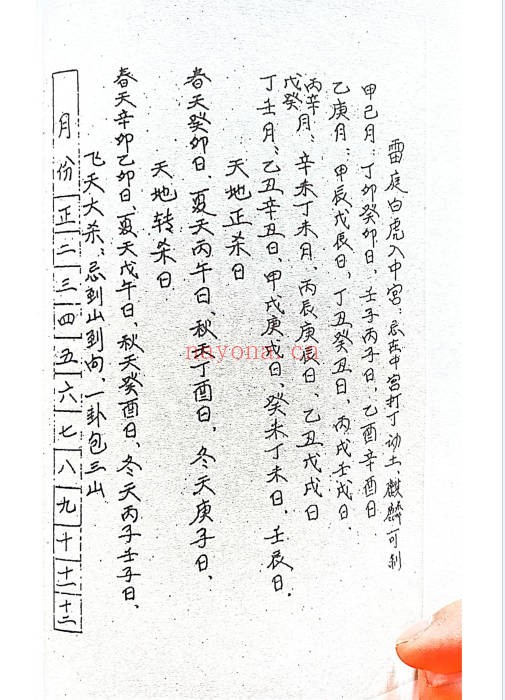 雷庭白虎入中宫：忌在中宫打丁动土、麒麟可制
甲己月：丁卯癸卯日、壬子丙子日、乙酉辛酉日
乙庚月：甲辰戊辰日、丁丑癸丑日、丙戌壬戌日、
丙辛月：辛未丁未月、丙辰庚辰日、乙丑戊戌日
戊癸
丁壬月：乙丑辛丑日、甲戌庚戌日、癸未丁未日、壬辰日．
天地正杀日
春天癸卯日、夏天丙午日、秋天丁酉日、冬天庚子日、
天地转杀日
春天辛卯乙卯日、夏天戊午日、秋天癸酉日、冬天丙子壬子日、
飞天大杀：忌到山到向、一卦包三山
月份 正 二 三 四 五 六 七 八 九 十 十一 十二
nayona.cn